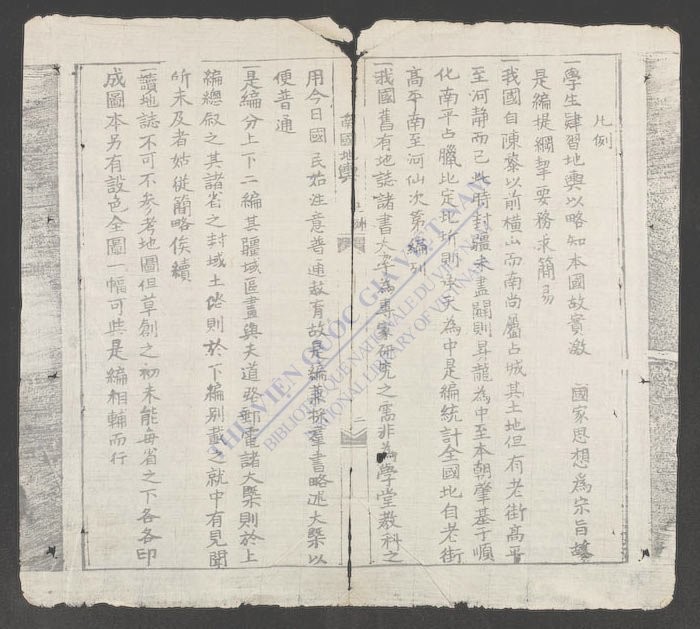 凡例
一學生肄習地輿以略知本國故實激 國家思想為宗旨故
是編提綱挈要務求簡易
一我國自陳黎以前橫山而南尚屬占城其土地但有老街高平
至河靜而已此時封疆未盡闢則昇龍為中至本朝肇基于順
化南平占臘比定地所則承天為中是編統計全國地自老街
高平南至河仙次第編列
一我國舊有地誌諸書大率為專家研究之需非為學堂教科之
南國地輿
二
用今日國民始注意普通教育故是編兼採羣書略述大槩以
便普通
一是編分上下二編其疆域區畫與夫道路郵電諸大槩則於上
編總叙之其諸省之封域土俗則於下編別載之就中有見聞
所未及者姑從簡略俟續
一讀地誌不可不參考地圖但草創之初未能每省之下各各印
成圖本另有設色全圖一幅可與是編相輔而行
THƯ VIỆN QUỐC GIA VIỆT NAM
BIBLIOTHÈQUE NATIONALE DU VIETNAM
NATIONAL LIBRARY OF VIETNAM